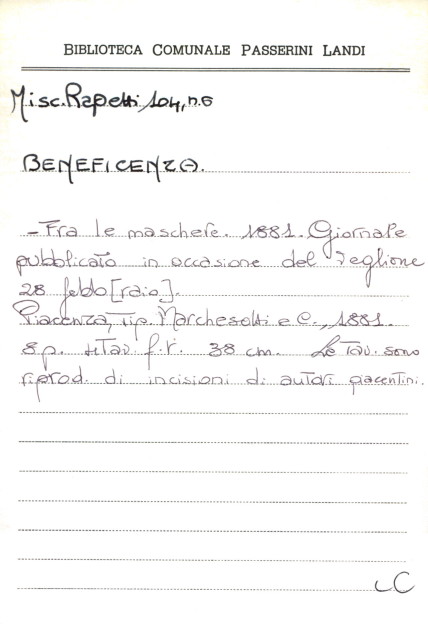 BIBLIOTECA COMUNALE PASSERINI LANDI
Misc. Rapetti 104, n. 6
BENEFICENZA.
- Fra le maschere. 1881. Giornale
pubblicato in occasione del Veglione
28 febb[raio].
Piacenza, Tip. Marchesotti e C., 1881.
8 p. tav. f.t. 38 cm. Le Tav. sono
riprod. di incisioni di autori piacentini.
LC